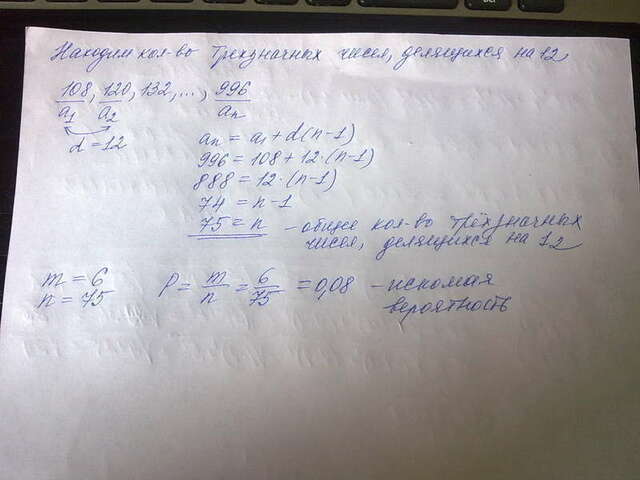 Находим кол-во трёхзначных чисел, делящихся на 12
108, 120, 132, ..., 996
a₁ a₂ aₙ
d = 12
aₙ = a₁ + d(n-1)
996 = 108 + 12·(n-1)
888 = 12·(n-1)
74 = n-1
75 = n - общее кол-во трёхзначных
чисел, делящихся на 12
m = 6
n = 75
P = m/n = 6/75 = 0,08 - искомая
вероятность